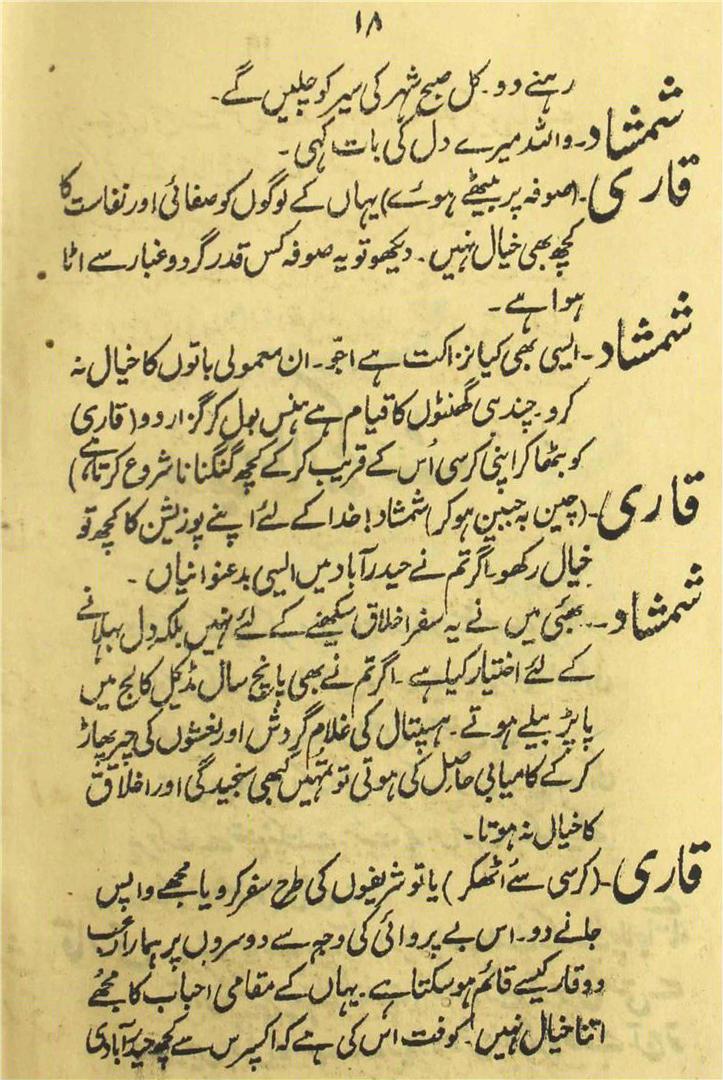 ۱۸
رہنے دو۔ کل صبح شہر کی سیر کو چلیں گے۔
شمشاد۔ واللہ میرے دل کی بات کہی۔
قاری۔ (صوفہ پر بیٹھے ہوئے) یہاں کے لوگوں کو صفائی اور نفاست کا
کچھ بھی خیال نہیں۔ دیکھو تو یہ صوفہ کس قدر گرد و غبار سے اٹا
ہوا ہے۔
شمشاد۔ ایسی بھی کیا نزاکت ہے اجّو۔ ان معمولی باتوں کا خیال نہ
کرو۔ چند ہی گھنٹوں کا قیام ہے ہنس بول کر گزار دو (قاری
کو بٹھا کر اپنی کرسی اُس کے قریب کر کے کچھ گنگنانا شروع کرتا ہے)
قاری۔ (چین بہ جبین ہو کر) شمشاد! خدا کے لئے اپنے پوزیشن کا کچھ تو
خیال رکھو۔ اگر تم نے حیدرآباد میں ایسی بدعنوانیاں۔
شمشاد۔ بھئی میں نے یہ سفر اخلاق سیکھنے کے لئے نہیں بلکہ دِل بہلانے
کے لئے اختیار کیا ہے۔ اگر تم نے بھی پانچ سال مڈیکل کالج میں
پاپڑ بیلے ہوتے۔ ہسپتال کی غلام گردش اور نعشوں کی چیر پھاڑ
کر کے کامیابی حاصِل کی ہوتی تو تمہیں کبھی سنجیدگی اور اخلاق
کا خیال نہ ہوتا۔
قاری۔ (کرسی سے اُٹھکر) یا تو شریفوں کی طرح سفر کرو یا مجھے واپس
جانے دو۔ اس بے پروائی کی وجہ سے دوسروں پر ہمارا رعب
و وقار کیسے قائم ہو سکتا ہے۔ یہاں کے مقامی احباب کا مجھے
اتنا خیال نہیں۔ کوفت اس کی ہے کہ اکسپرس سے کچھ حیدرآبادی